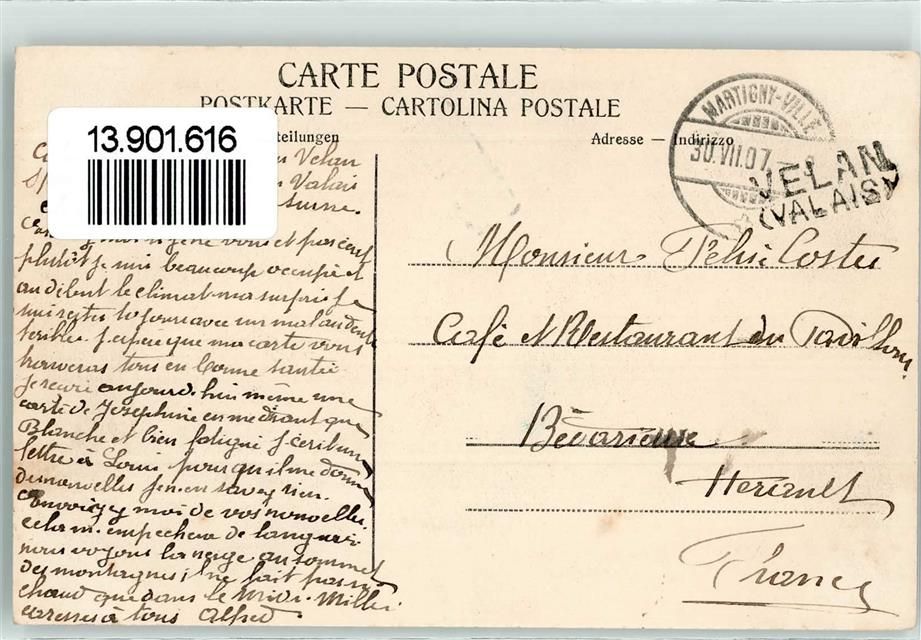 CARTE POSTALE
POSTKARTE — CARTOLINA POSTALE
teilungen
Adresse — Indirizzo
13.901.616
MARTIGNY-VILLE
30.VII.07.
VELAN
(VALAIS)
Velan
Valais
suisse.
vous et
plutôt je suis beaucoup occupé et
au dibut le climat ma surpris je
suis restes 10 jours avec un mal au dents
terribles. J'espere que ma carte vous
trouveras tous en bonne santée
Je recu aujourd'hui même une
carte de Josephine en me disant que
Blanche et bien fatigué J'ecrit
lettre à Louis pour qu'il me donne
des nouvelles j'en en savez rien.
Envoiyez moi de vos nouvelles
cela m'empechera de languir
nous voyons la neige au sommet
des montagnes il ne fait pas si
chaud que dans le Midi. Milles
caresses à tous Alfred
Monsieur Felix Costes
Café et Restaurant du Pavillon
Bédarieux
Herault
France